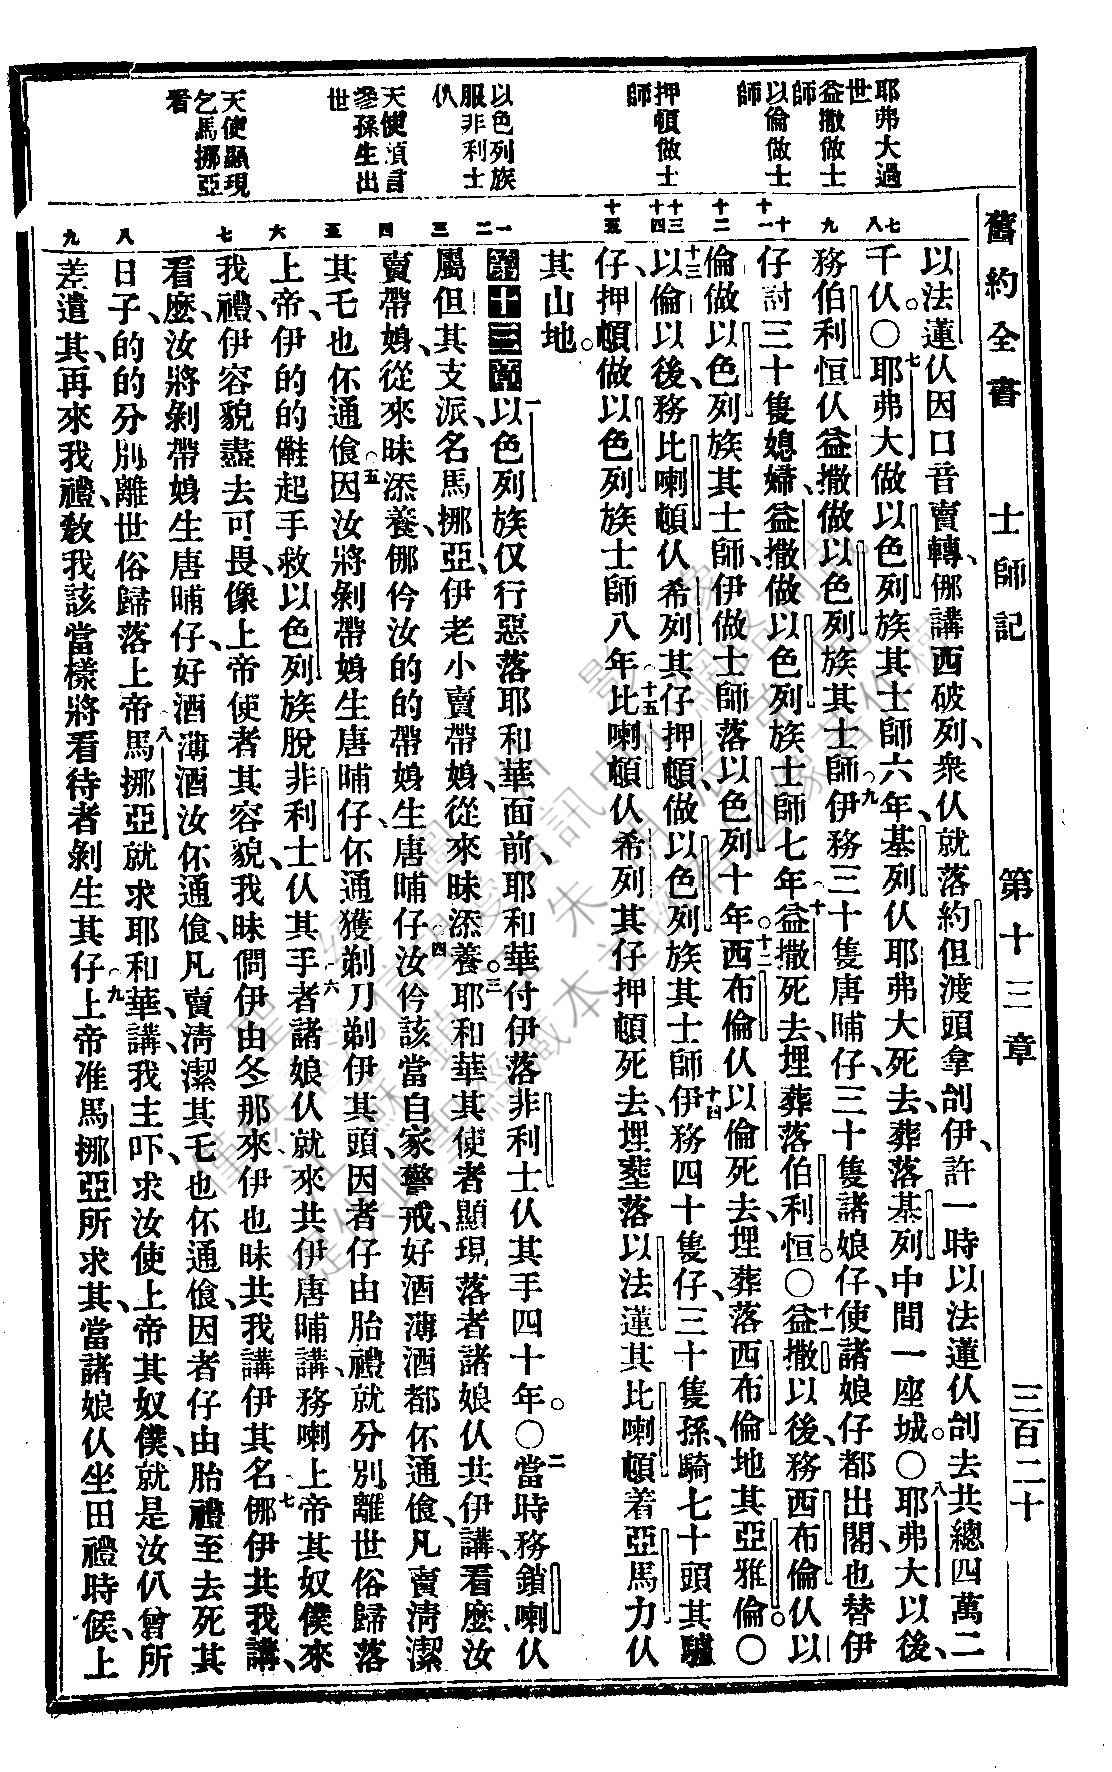 舊約全書 士師記 第十三章 三百二十
耶弗大過
世
益撒做士
師
以倫做士
師
押頓做士
師
以色列族
服非利士
仈
天使預言
參孫生出
世
天使顯現
乞馬挪亞
看
七 八 九 十 十一 十二 十三 十四 十五 一 二 三 四 五 六 七 八 九
以法蓮仈因口音賣轉、䏻講西破列、衆仈就落約但渡頭拿刣伊、許一時以法蓮仈刣去共總四萬二
千仈。〇七耶弗大做以色列族其士師六年、基列仈耶弗大死去、葬落基列中間一座城。〇八耶弗大以後、
務伯利恒仈益撒做以色列族其士師、九伊務三十隻唐晡仔、三十隻諸娘仔、使諸娘仔都出閣、也替伊
仔討三十隻媳婦、益撒做以色列族士師七年。十益撒死去、埋葬落伯利恒。〇十一益撒以後、務西布倫仈以
倫做以色列族其士師、伊做士師落以色列十年。十二西布倫仈以倫死去、埋葬落西布倫地其亞雅倫。〇
十三以倫以後、務比喇頓仈希列其仔押頓、做以色列族其士師、十四伊務四十隻仔、三十隻孫、騎七十頭其驢
仔、押頓做以色列族士師八年、十五比喇頓仈希列其仔押頓死去、埋塟落以法蓮其比喇頓着亞馬力仈
其山地。
第十三章 一以色列族仅行惡落耶和華面前、耶和華付伊落非利士仈其手四十年。〇二當時務鎖喇仈
屬但其支派、名馬挪亞、伊老小賣帶娚、從來昧添養。三耶和華其使者顯現落者諸娘仈共伊講、看麼、汝
賣帶娚、從來昧添養、䏻伶汝的的帶娚、生唐晡仔、四汝伶該當自家警戒、好酒薄酒都伓通飡、凡賣淸潔
其乇也伓通飡、五因汝將剝帶娚生唐晡仔、伓通獲剃刀剃伊其頭、因者仔由胎禮就分別離世俗歸落
上帝、伊的的儺起手救以色列族脫非利士仈其手、六者諸娘仈就來共伊唐晡講、務喇上帝其奴僕來
我禮、伊容貌盡去可畏、像上帝使者其容貌、我昧問伊由冬那來、伊也昧共我講伊其名、七䏻伊共我講、
看麼、汝將剝帶娚生唐晡仔、好酒薄酒汝伓通飡、凡賣淸潔其乇、也伓通飡、因者仔由胎禮至去死其
日子、的的分別離世俗歸落上帝、八馬挪亞就求耶和華講、我主吓、求汝使上帝其奴僕、就是汝仈曾所
差遣其、再來我禮、敎我該當樣將看待者剝生其仔、九上帝准馬挪亞所求其、當諸娘仈坐田禮時候、上